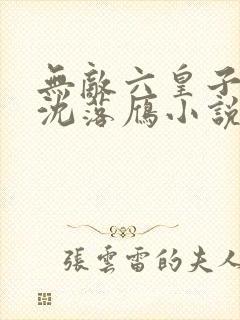 無敵六皇子
沈落雁小說
張雲雷的夫人